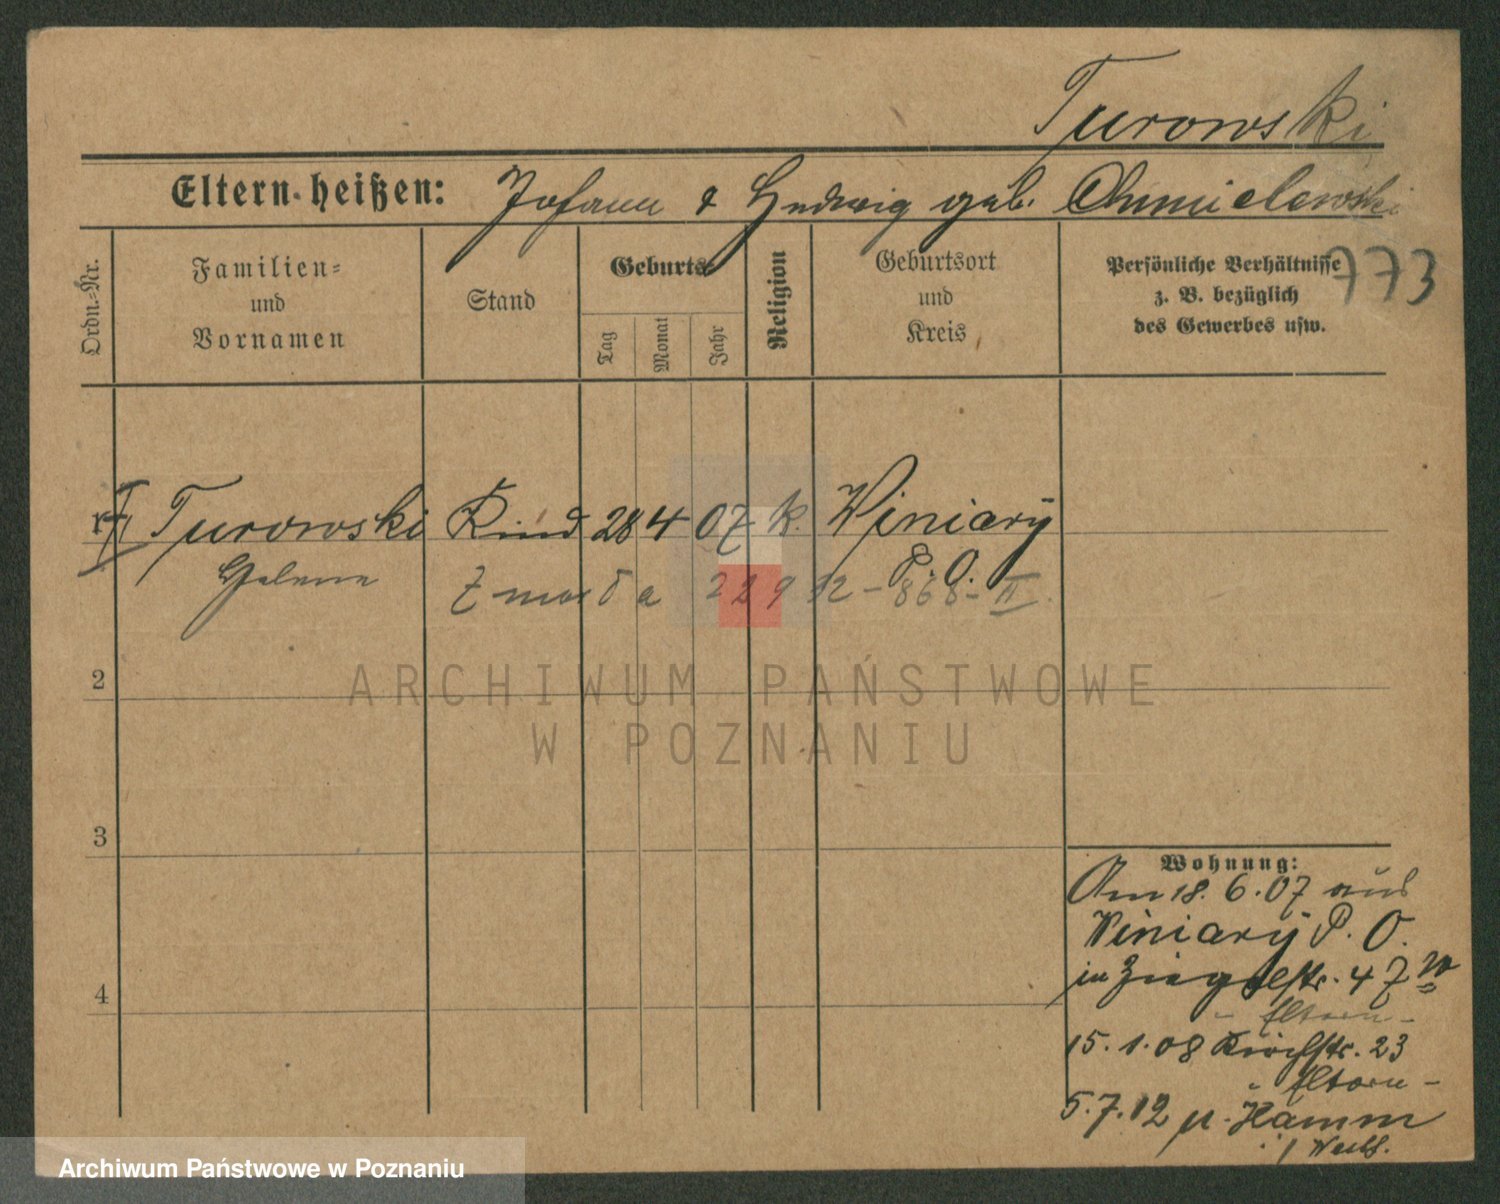 Turowski
Eltern heißen: Johann & Hedwig geb. Chmielewski
773
Ordn.-Nr.
Familien-
und
Vornamen
Stand
Geburts-
Tag
Monat
Jahr
Religion
Geburtsort
und
Kreis
Persönliche Verhältnisse
z. B. bezüglich
des Gewerbes usw.
1 Turowski Kind 28 4 07 k. Winiary
P. O.
Helena
Zmarła 22 9 12 - 868 - II
2
3
4
Wohnung:
Am 18. 6. 07 aus
Winiary P. O.
in Ziegelstr. 47
- Eltern -
15. 1. 08 Kirchstr. 23
Eltern -
5. 7. 12 n. Hamm
i/ Westf.
ARCHIWUM PAŃSTWOWE
W POZNANIU
Archiwum Państwowe w Poznaniu